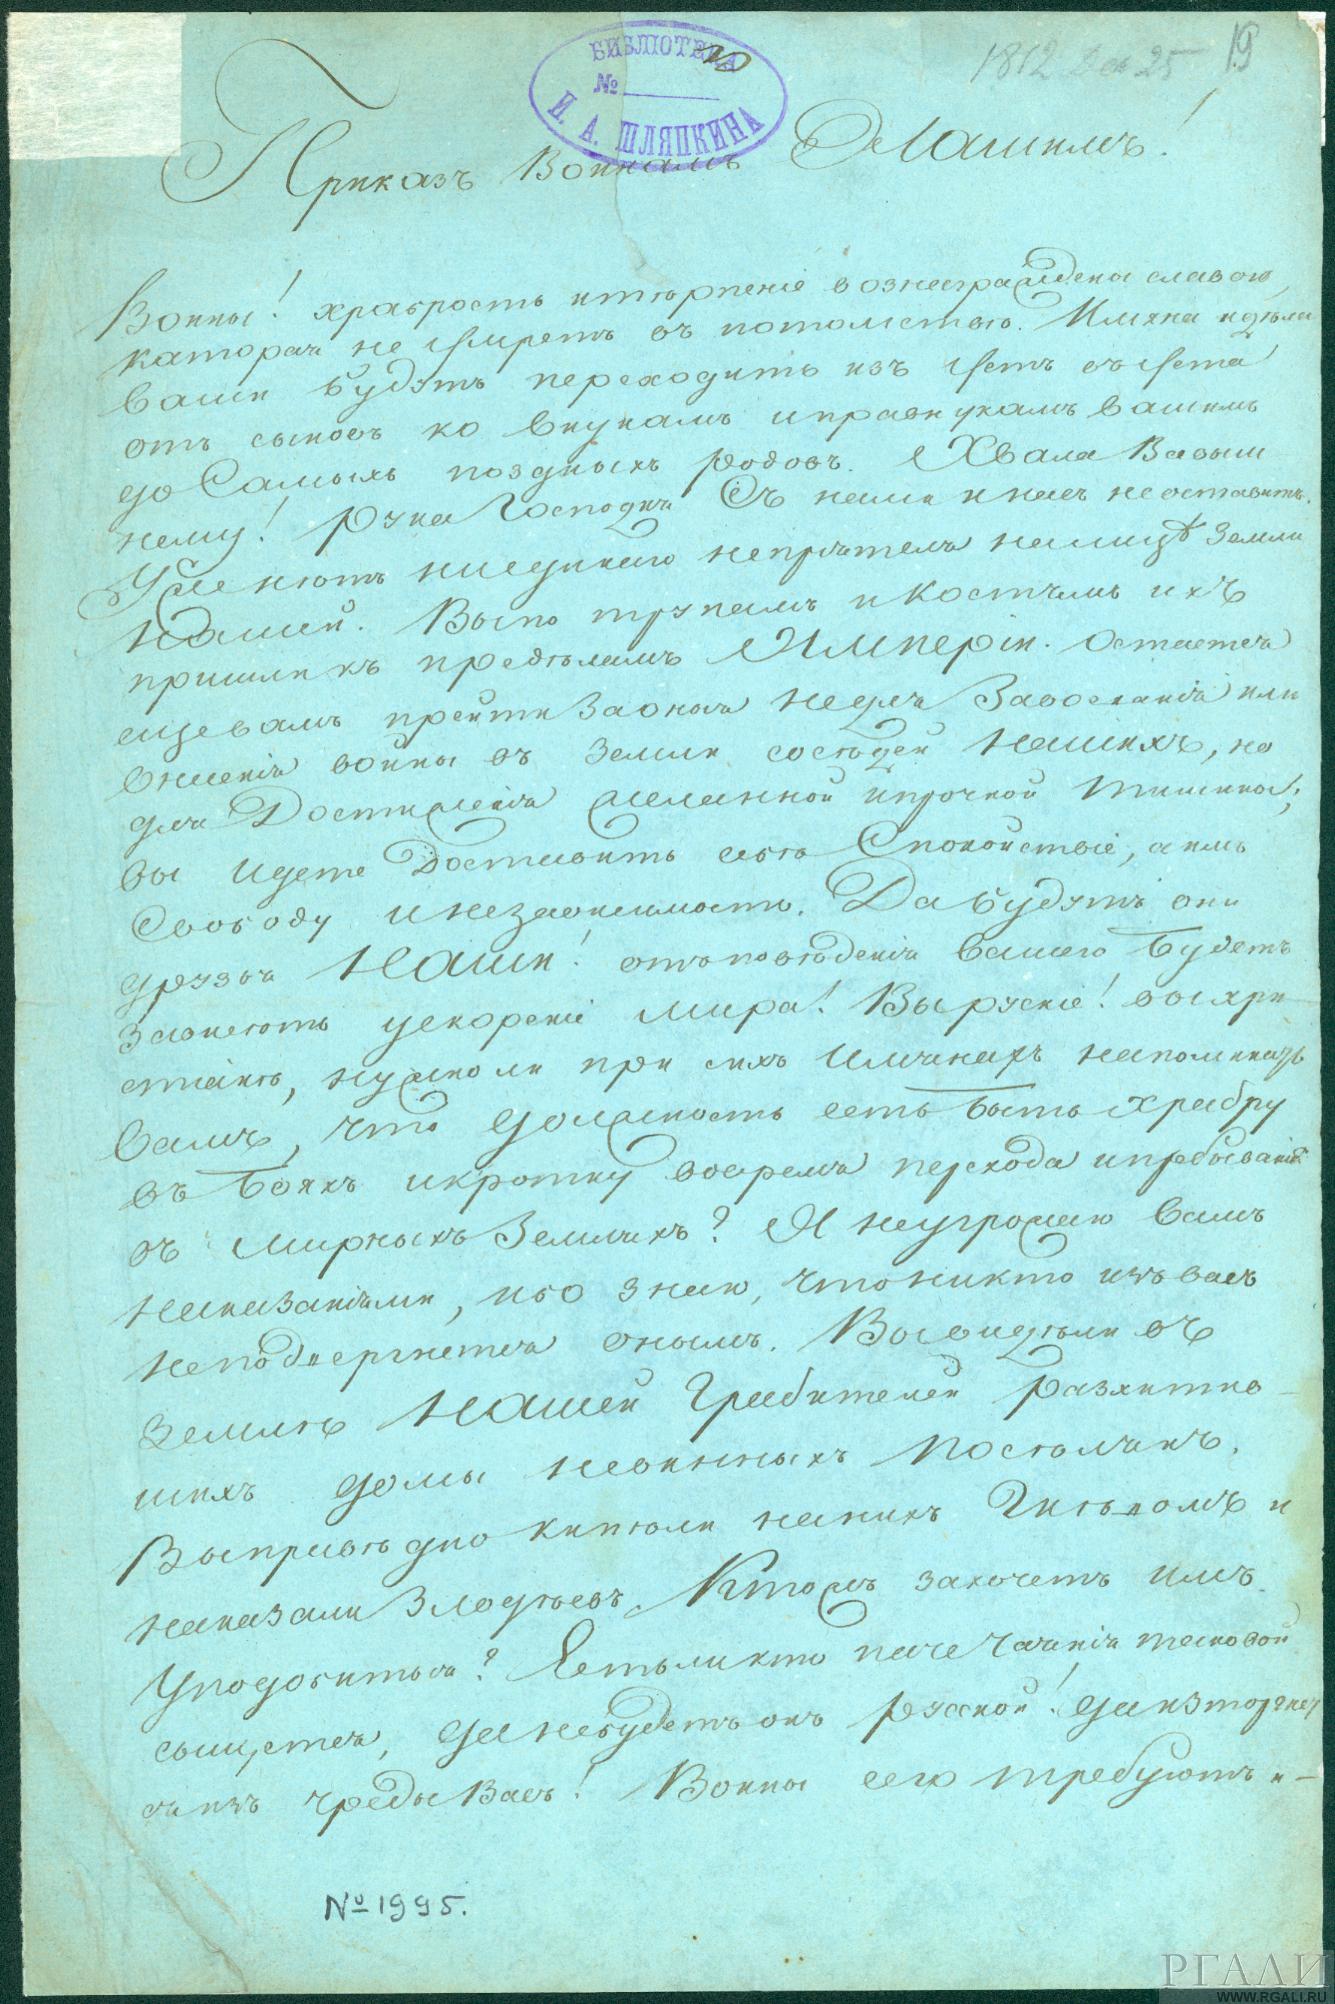 БИБЛІОТЕКА
№
И. А. ШЛЯПКИНА
1812 Дек 25
19
Приказъ Воинамъ Нашимъ!
Воины! храбрость и тѣрпеніе вознаграждены славою,
каторая не умретъ въ потомствѣ. Имяна и дѣла
ваши будутъ переходить изъ устъ въ уста
отъ сыновъ ко внукамъ и правнукамъ вашимъ
до Самыхъ поздныхъ родовъ. Хвала Вавыш
нему! Рука Господня Съ нами и насъ неоставитъ.
Уже нѣтъ ниединаго непріятеля налицѣ Земли
Нашей. Выпо трупамъ и Костямъ ихъ
пришли къ предѣламъ Имперіи. Остается
ещевамъ прейти Заоныя недля Завоеванія или
внесенія войны въ Земли сосѣдей Нашихъ, но
для Достиженія желанной ипрочной тишины;
вы Идете Доставить себѣ Спокойствіе, а имъ
Свободу инезависимость. Дабудутъ они
друзья Наши! отъповѣденія вашего будетъ
зависѣть ускореніе мира! Вы рускіе! выхри
стіанѣ, нужноли при сихъ Имянахъ напоминать
вамъ, что должность есть быть храбру
въ бояхъ и кротку вовремя перехода ипребыванія
въ мирныхъ Земляхъ? Я неугрожаю вамъ
наказаніями, ибо знаю, чтоникто изъ васъ
неподвергнется онымъ. Вывидѣли въ
землѣ Нашей Грабителей Расхитив-
шихъ домы невинныхъ поселянъ.
Выправѣдно кипѣли наникъ Гнѣвомъ и
наказали Злодѣевъ. Ктожъ захочетъ имъ
Уподобиться? Естьли кто паче Чаянія таковой
сыщется, Данебудетъ онъ рускои! даизторгнет
ся изъ среды Васъ! Воины сего требуютъ и-
№ 1995.
РГАЛИ
WWW.RGALI.RU